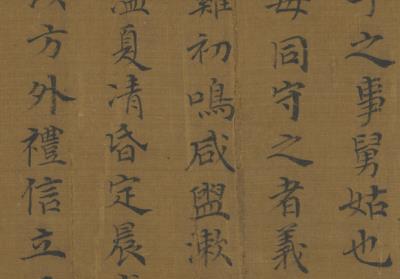 之事舅姑也
同守之者義
初鳴咸盥漱
夏凊昏定晨
方外禮信立